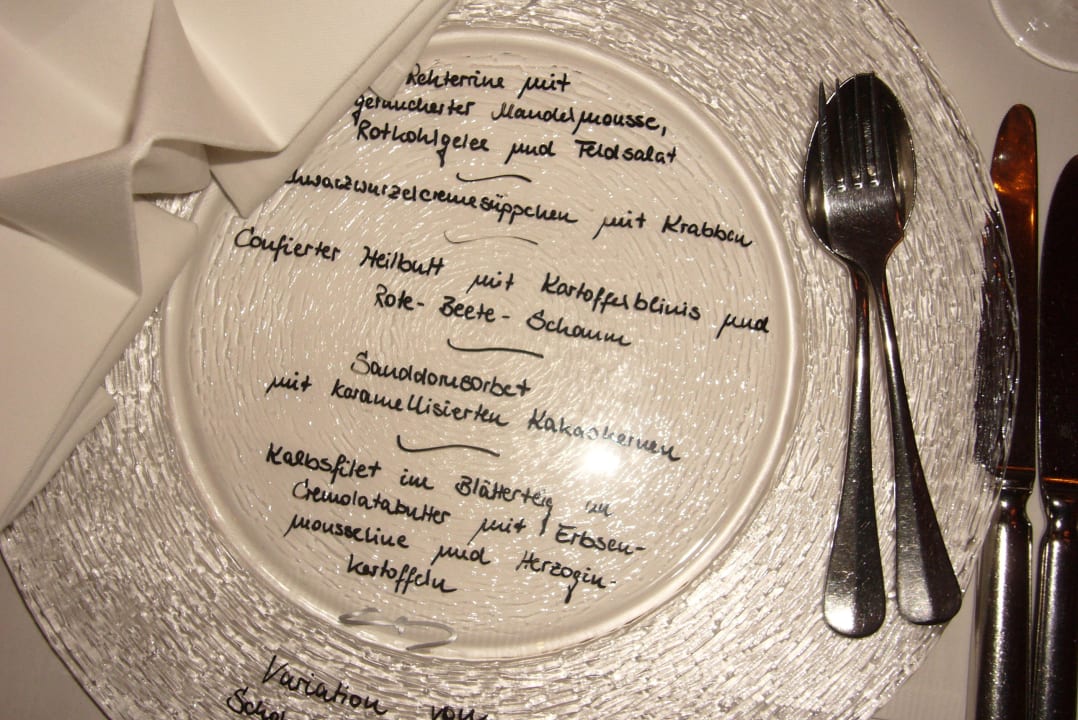 Rehterrine mit
geräucherter Mandelmousse,
Rotkohlgelee und Feldsalat
hwarzwurzelcremesüppchen mit Krabben
Confierter Heilbutt mit Kartoffelblinis und
Rote-Beete-Schaum
Sanddornsorbet
mit karamellisierten Kakaokernen
Kalbsfilet im Blätterteig in
Cremolatabutter mit Erbsen-
mousseline und Herzogin-
kartoffeln
Variation von
Scho